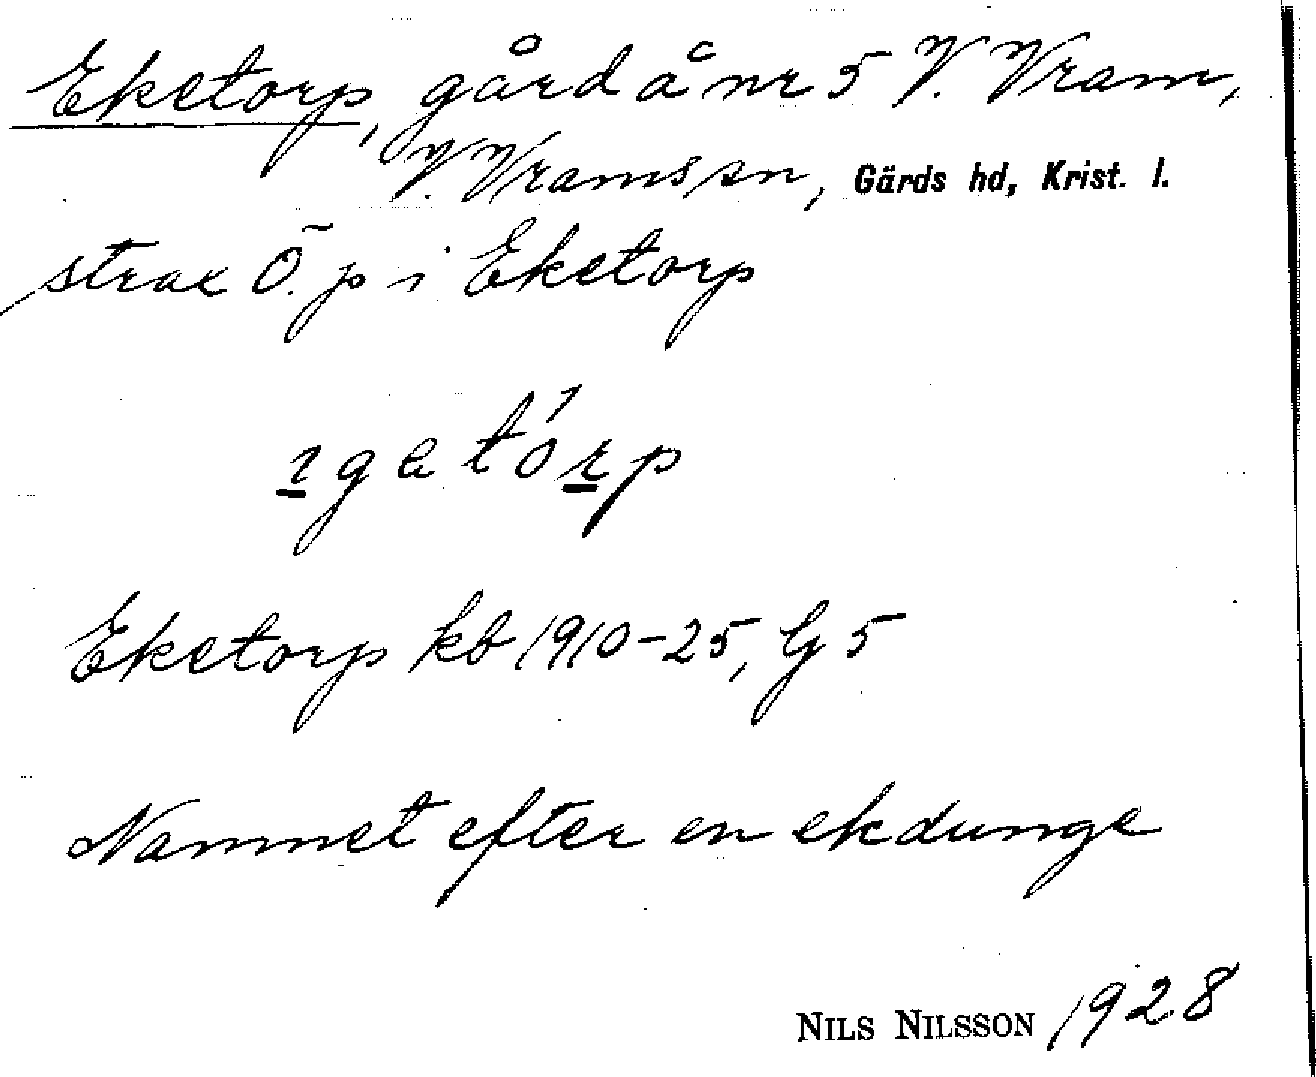 Eketorp, gård å nr 5 V. Vram,
V. Vrams sn, Gärds hd, Krist. l.
strax Ö. p i Eketorp
Eketorp kb 1910-25, Gj 5
Namnet efter en ekdunge
NILS NILSSON 1928